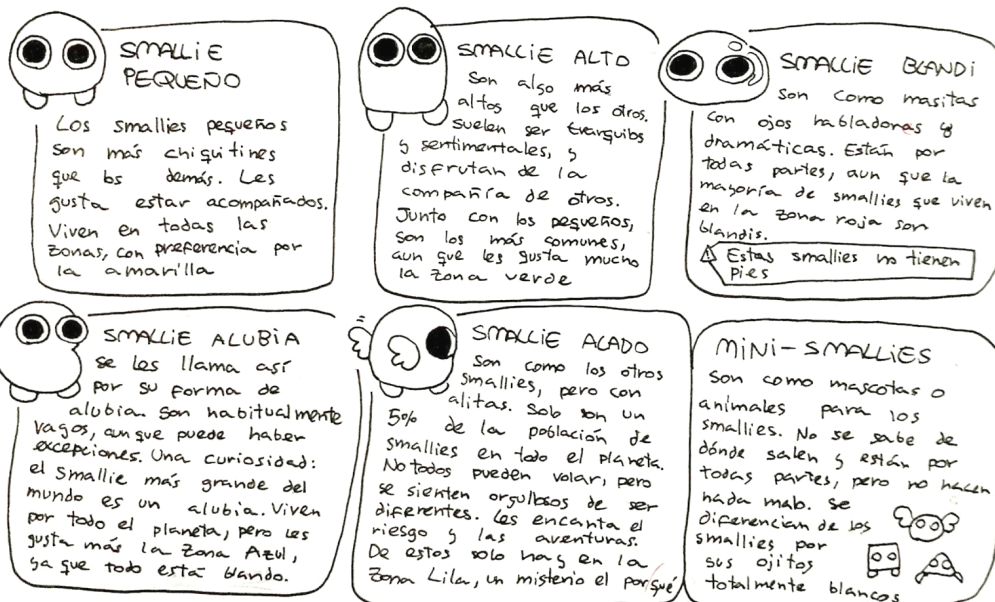 SMALLIE
PEQUEÑO
Los smallies pequeños
son más chiquitines
que los demás. Les
gusta estar acompañados.
Viven en todas las
zonas, con preferencia por
la amarilla
SMALLIE ALTO
Son algo más
altos que los otros.
Suelen ser tranquilos
y sentimentales, y
disfrutan de la
compañía de otros.
Junto con los pequeños,
son los más comunes,
aun que les gusta mucho
la zona verde
SMALLIE BLANDI
Son como masitas
con ojos habladoras y
dramáticas. Están por
todas partes, aun que la
mayoría de smallies que viven
en la zona roja son
blandis.
Estos smallies no tienen
pies
SMALLIE ALUBIA
se les llama así
por su forma de
alubia. Son habitualmente
vagos, aunque puede haber
excepciones. Una curiosidad:
el smallie más grande del
mundo es un alubia. Viven
por todo el planeta, pero les
gusta más la Zona Azul,
ya que todo está blando.
SMALLIE ALADO
Son como los otros
smallies, pero con
alitas. Solo son un
5% de la población de
smallies en todo el planeta.
No todos pueden volar, pero
se sienten orgullosos de ser
diferentes. Les encanta el
riesgo y las aventuras.
De estos solo hay en la
Zona Lila, un misterio el porqué
MINI-SMALLIES
Son como mascotas o
animales para los
smallies. No se sabe de
dónde salen y están por
todas partes, pero no hacen
nada malo. Se
diferencian de los
smallies por
sus ojitos
totalmente blancos